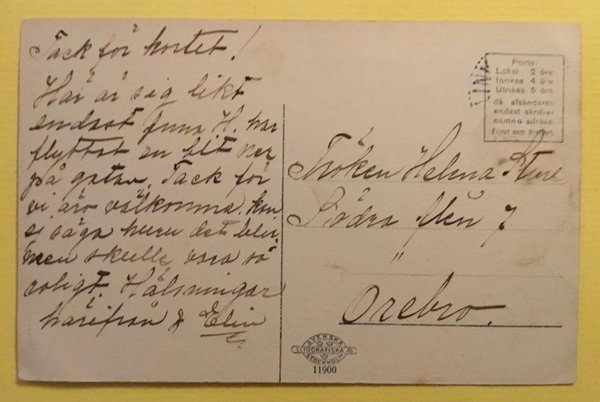 Tack för kortet!
Här är sig likt
endast fruna H. har
flyttat en bit ner
på gatan. Tack för
vi äro välkomna, kan
ej säga huru det blir,
men skulle vara så
roligt. Hälsningar
härifrån & Elin
Porto:
Lokal 2 öre
Inrikes 4 öre
Utrikes 5 öre
då afsändaren
endast skrifver
namn o adress.
Eljest som Brefkort.
Fröken Helena
Södra 7
"
Örebro.
SVENSKA
LITOGRAFISKA AB
STOCKHOLM
11900